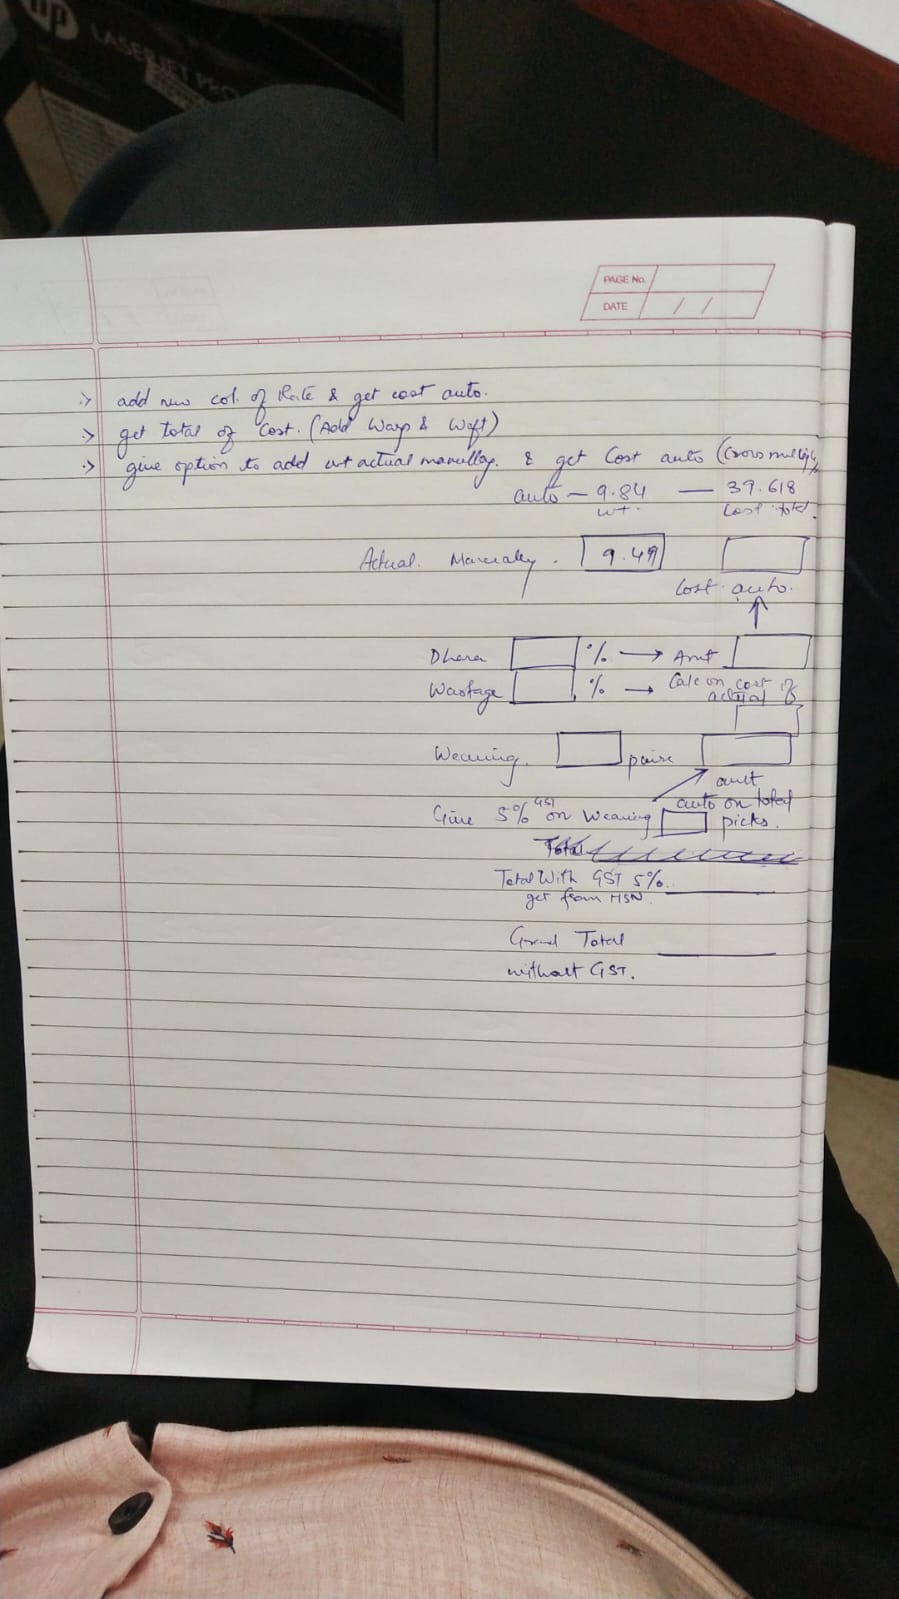 hp LASERJET PRO
PAGE No.
DATE / /
:> add new col. of Rate & get cost auto.
:> get total of Cost. (Add Warp & Weft)
:> give option to add wt actual manually. & get Cost auto (Cross multiply
auto — 9.84 — 39.618
wt. Cost total.
Actual. Manually. 9.49
Cost auto.
Dhara % → Amt
Wastage % → Calc on cost of
actual
Weaving. paise
amt
auto on total
Give 5% GST on Weaving picks.
Total
Total With GST 5%.
get from HSN.
Grand Total
without GST.